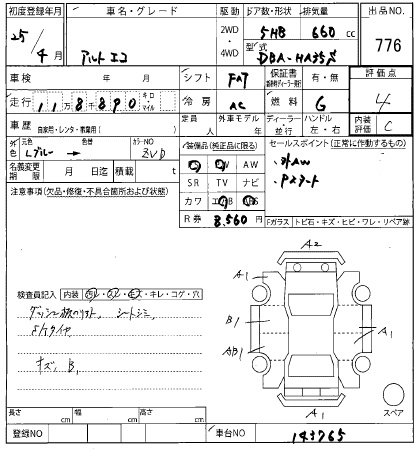 初度登録年月 車名・グレード 駆動 ドア数・形状 排気量 出品NO.
25/4月 アルト エコ 2WD・4WD 5HB 660 cc 776
型式 DBA-HA35S
車検 年 月 シフト FAT 保証書 有・無 評価点
走行 118890 キロ・マイル 冷房 AC 燃料 G 4
車歴 自家用・レンタ・教習用( ) 定員 人 外車モデル 年 ディーラー・並行 ハンドル 左・右 内装評価 C
外色 元色 Lブルー → 色替 カラーNO ZVD 装備品(純正品に限る) セールスポイント(正常に作動するもの)
名義変更期限 月 日迄 積載 t PS PW AW 社外AW
SR TV ナビ Pスタート
注意事項(欠品・修復・不具合箇所および状態) カワ エアB ABS
R券 8,560円 Fガラス トビ石・キズ・ヒビ・ワレ・リペア跡
A2
A1
検査員記入 内装 汚レ・スレ・キズ・キレ・コゲ・穴
シートシミ
キズ、B1
B1
AB1
A1
A1
スペア
長さ cm 幅 cm 高さ cm
登録NO 車台NO 143765